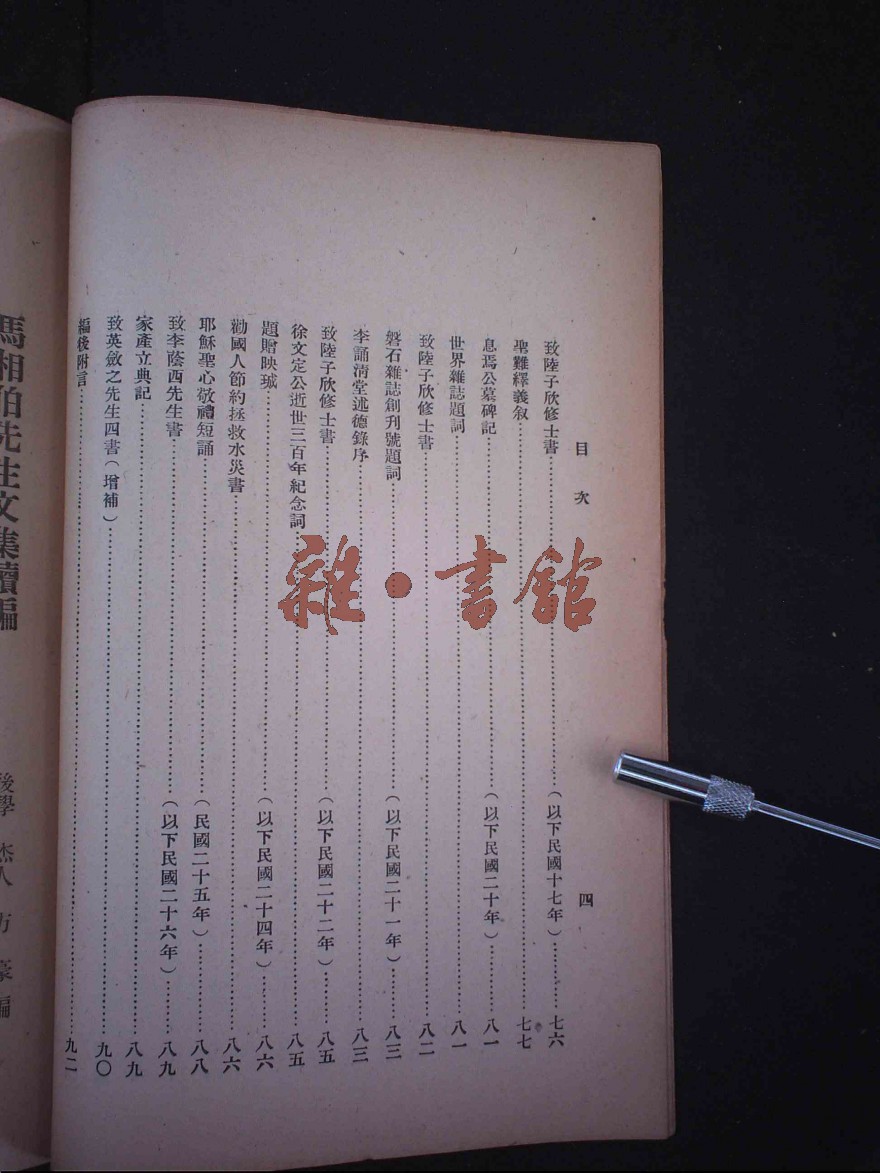 目次
四
致陸子欣修士書……(以下民國十七年)……七六
聖難繹義叙……七七
息焉公墓碑記……(以下民國二十年)……八一
世界雜誌題詞……八一
致陸子欣修士書……八二
磐石雜誌創刊號題詞……(以下民國二十一年)……八三
李誦清堂述德錄序……八三
致陸子欣修士書……(以下民國二十二年)……八五
徐文定公逝世三百年紀念詞……八五
題贈映珹……(以下民國二十四年)……八六
勸國人節約拯救水災書……八六
耶穌聖心敬禮短誦……(民國二十五年)……八八
致李蔭西先生書……(以下民國二十六年)……八九
家產立典記……八九
致英斂之先生四書(增補)……九〇
編後附言……九二
馬相伯先生文集續編
後學 杰人 方豪 編
雜·書館